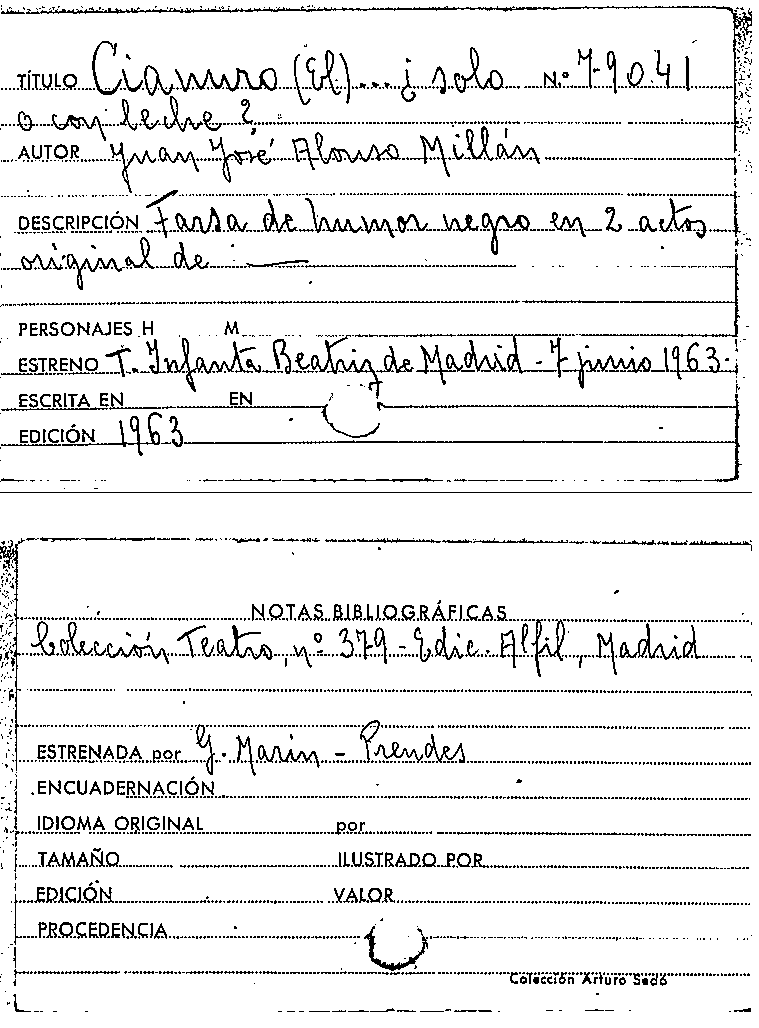 TÍTULO Cianuro (El)... ¿ solo N.º 7-9041
o con leche ?
AUTOR Juan José Alonso Millán
DESCRIPCIÓN Farsa de humor negro en 2 actos
original de : —
PERSONAJES H M
ESTRENO T. Infanta Beatriz de Madrid - 7 junio 1963.
ESCRITA EN EN
EDICIÓN 1963
NOTAS BIBLIOGRÁFICAS
Colección Teatro, nº 379 - Edic. Alfil, Madrid
ESTRENADA por G. Marin - Prendes
ENCUADERNACIÓN
IDIOMA ORIGINAL por
TAMAÑO ILUSTRADO POR
EDICIÓN VALOR
PROCEDENCIA
Colección Arturo Sedó